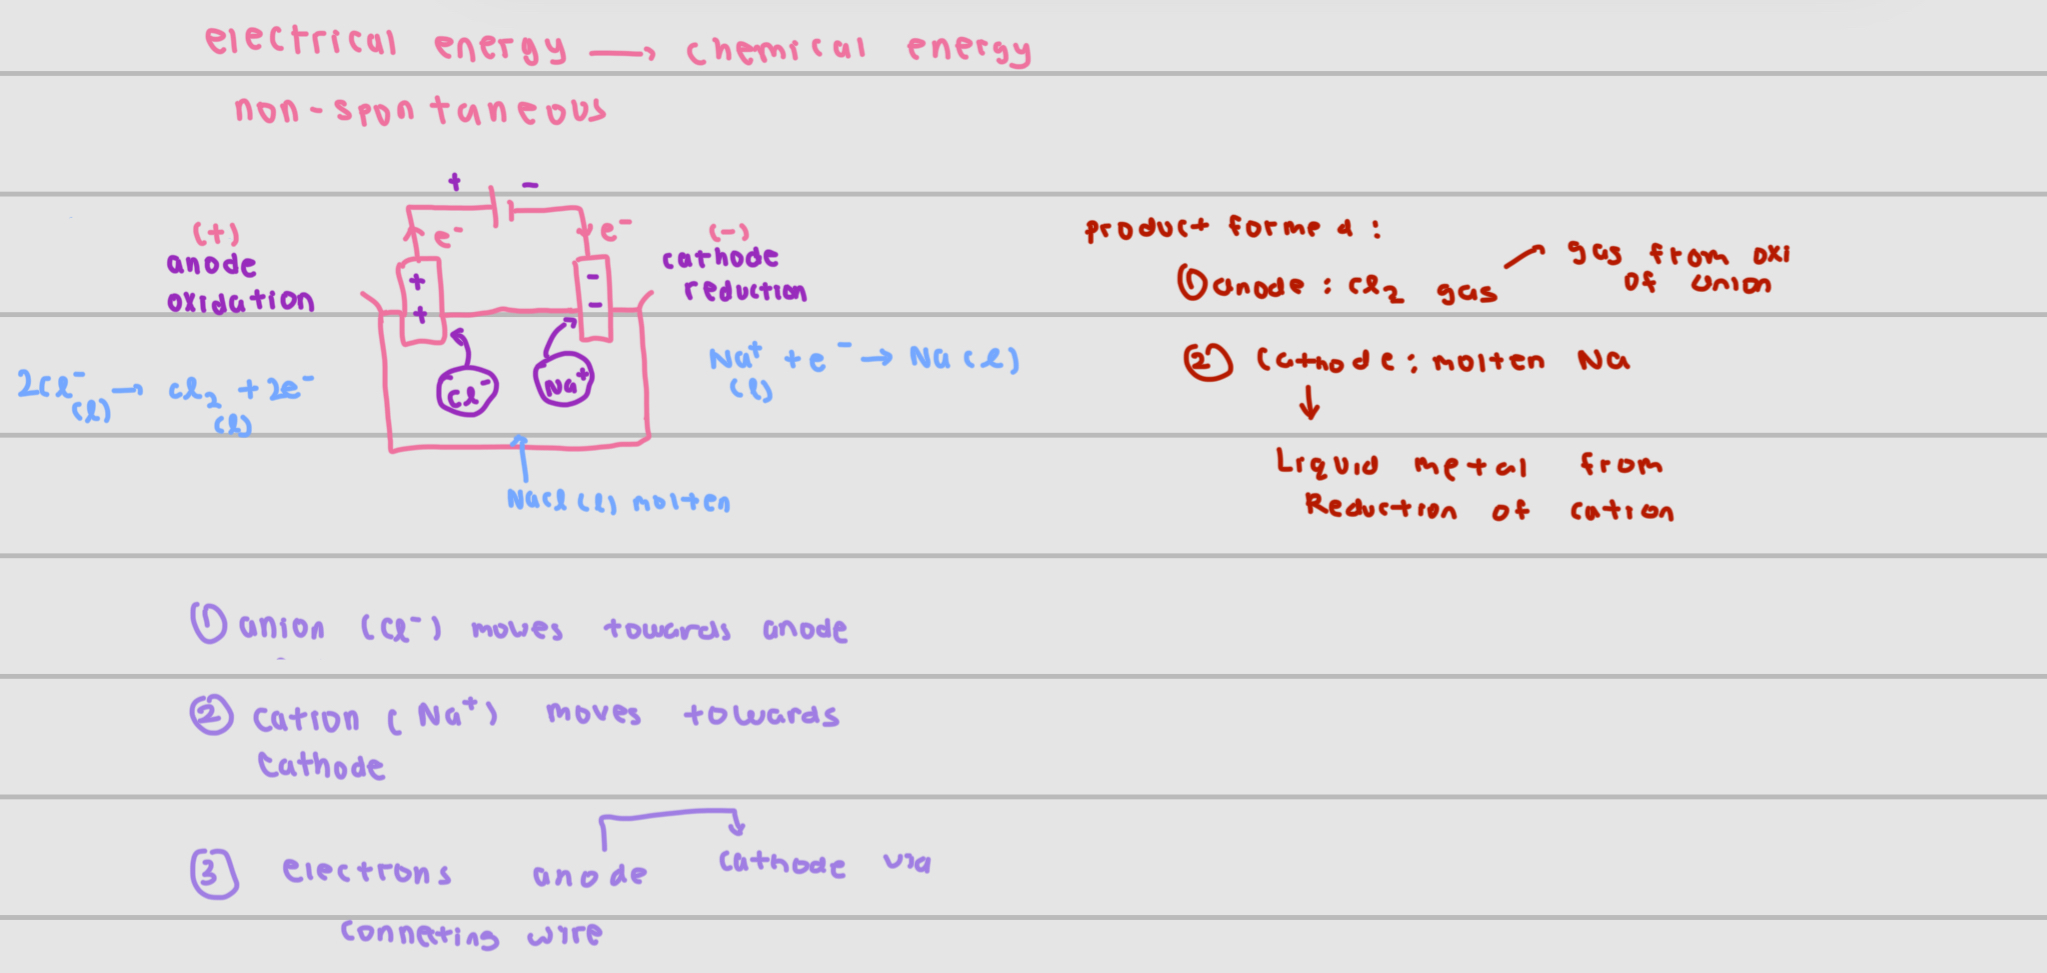 electrical energy → chemical energy
non-spontaneous
+ -
(+) e⁻ e⁻ (-)
anode
oxidation
cathode
reduction
+
+
-
-
2Cl⁻(l) → Cl₂(l) + 2e⁻
Cl⁻
Na⁺
Na⁺(l) + e⁻ → Na(l)
NaCl(l) molten
product formed:
① anode: Cl₂ gas
gas from oxi
of anion
② cathode: molten Na
↓
Liquid metal from
Reduction of cation
① anion (Cl⁻) moves towards anode
② cation (Na⁺) moves towards
cathode
③ electrons anode cathode via
connecting wire